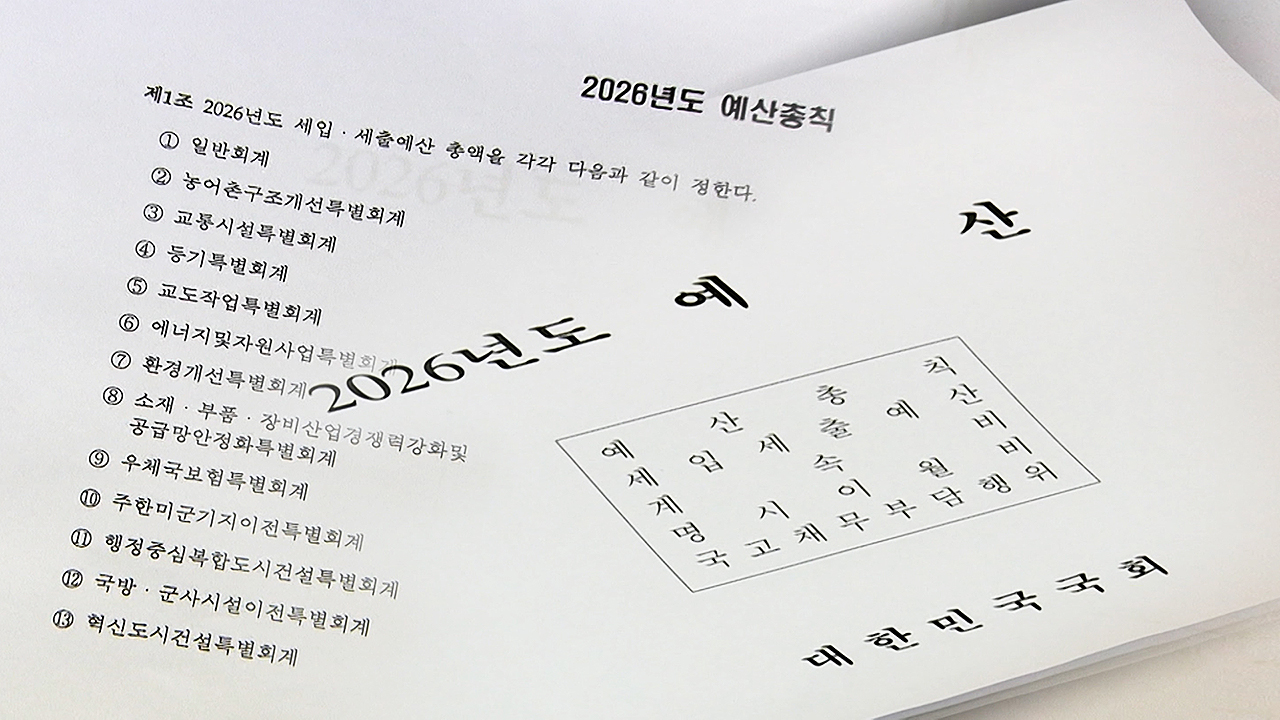 2026년도 예산총칙
제1조 2026년도 세입 · 세출예산 총액을 각각 다음과 같이 정한다.
① 일반회계
② 농어촌구조개선특별회계
③ 교통시설특별회계
④ 등기특별회계
⑤ 교도작업특별회계
⑥ 에너지및자원사업특별회계
⑦ 환경개선특별회계
⑧ 소재 · 부품 · 장비산업경쟁력강화및
공급망안정화특별회계
⑨ 우체국보험특별회계
⑩ 주한미군기지이전특별회계
⑪ 행정중심복합도시건설특별회계
⑫ 국방 · 군사시설이전특별회계
⑬ 혁신도시건설특별회계
2026년도
2026년도 예 산
예 산 총 칙
세 입 세 출 예 산
계 속 비
명 시 이 월 비
국 고 채 무 부 담 행 위
대 한 민 국 국 회